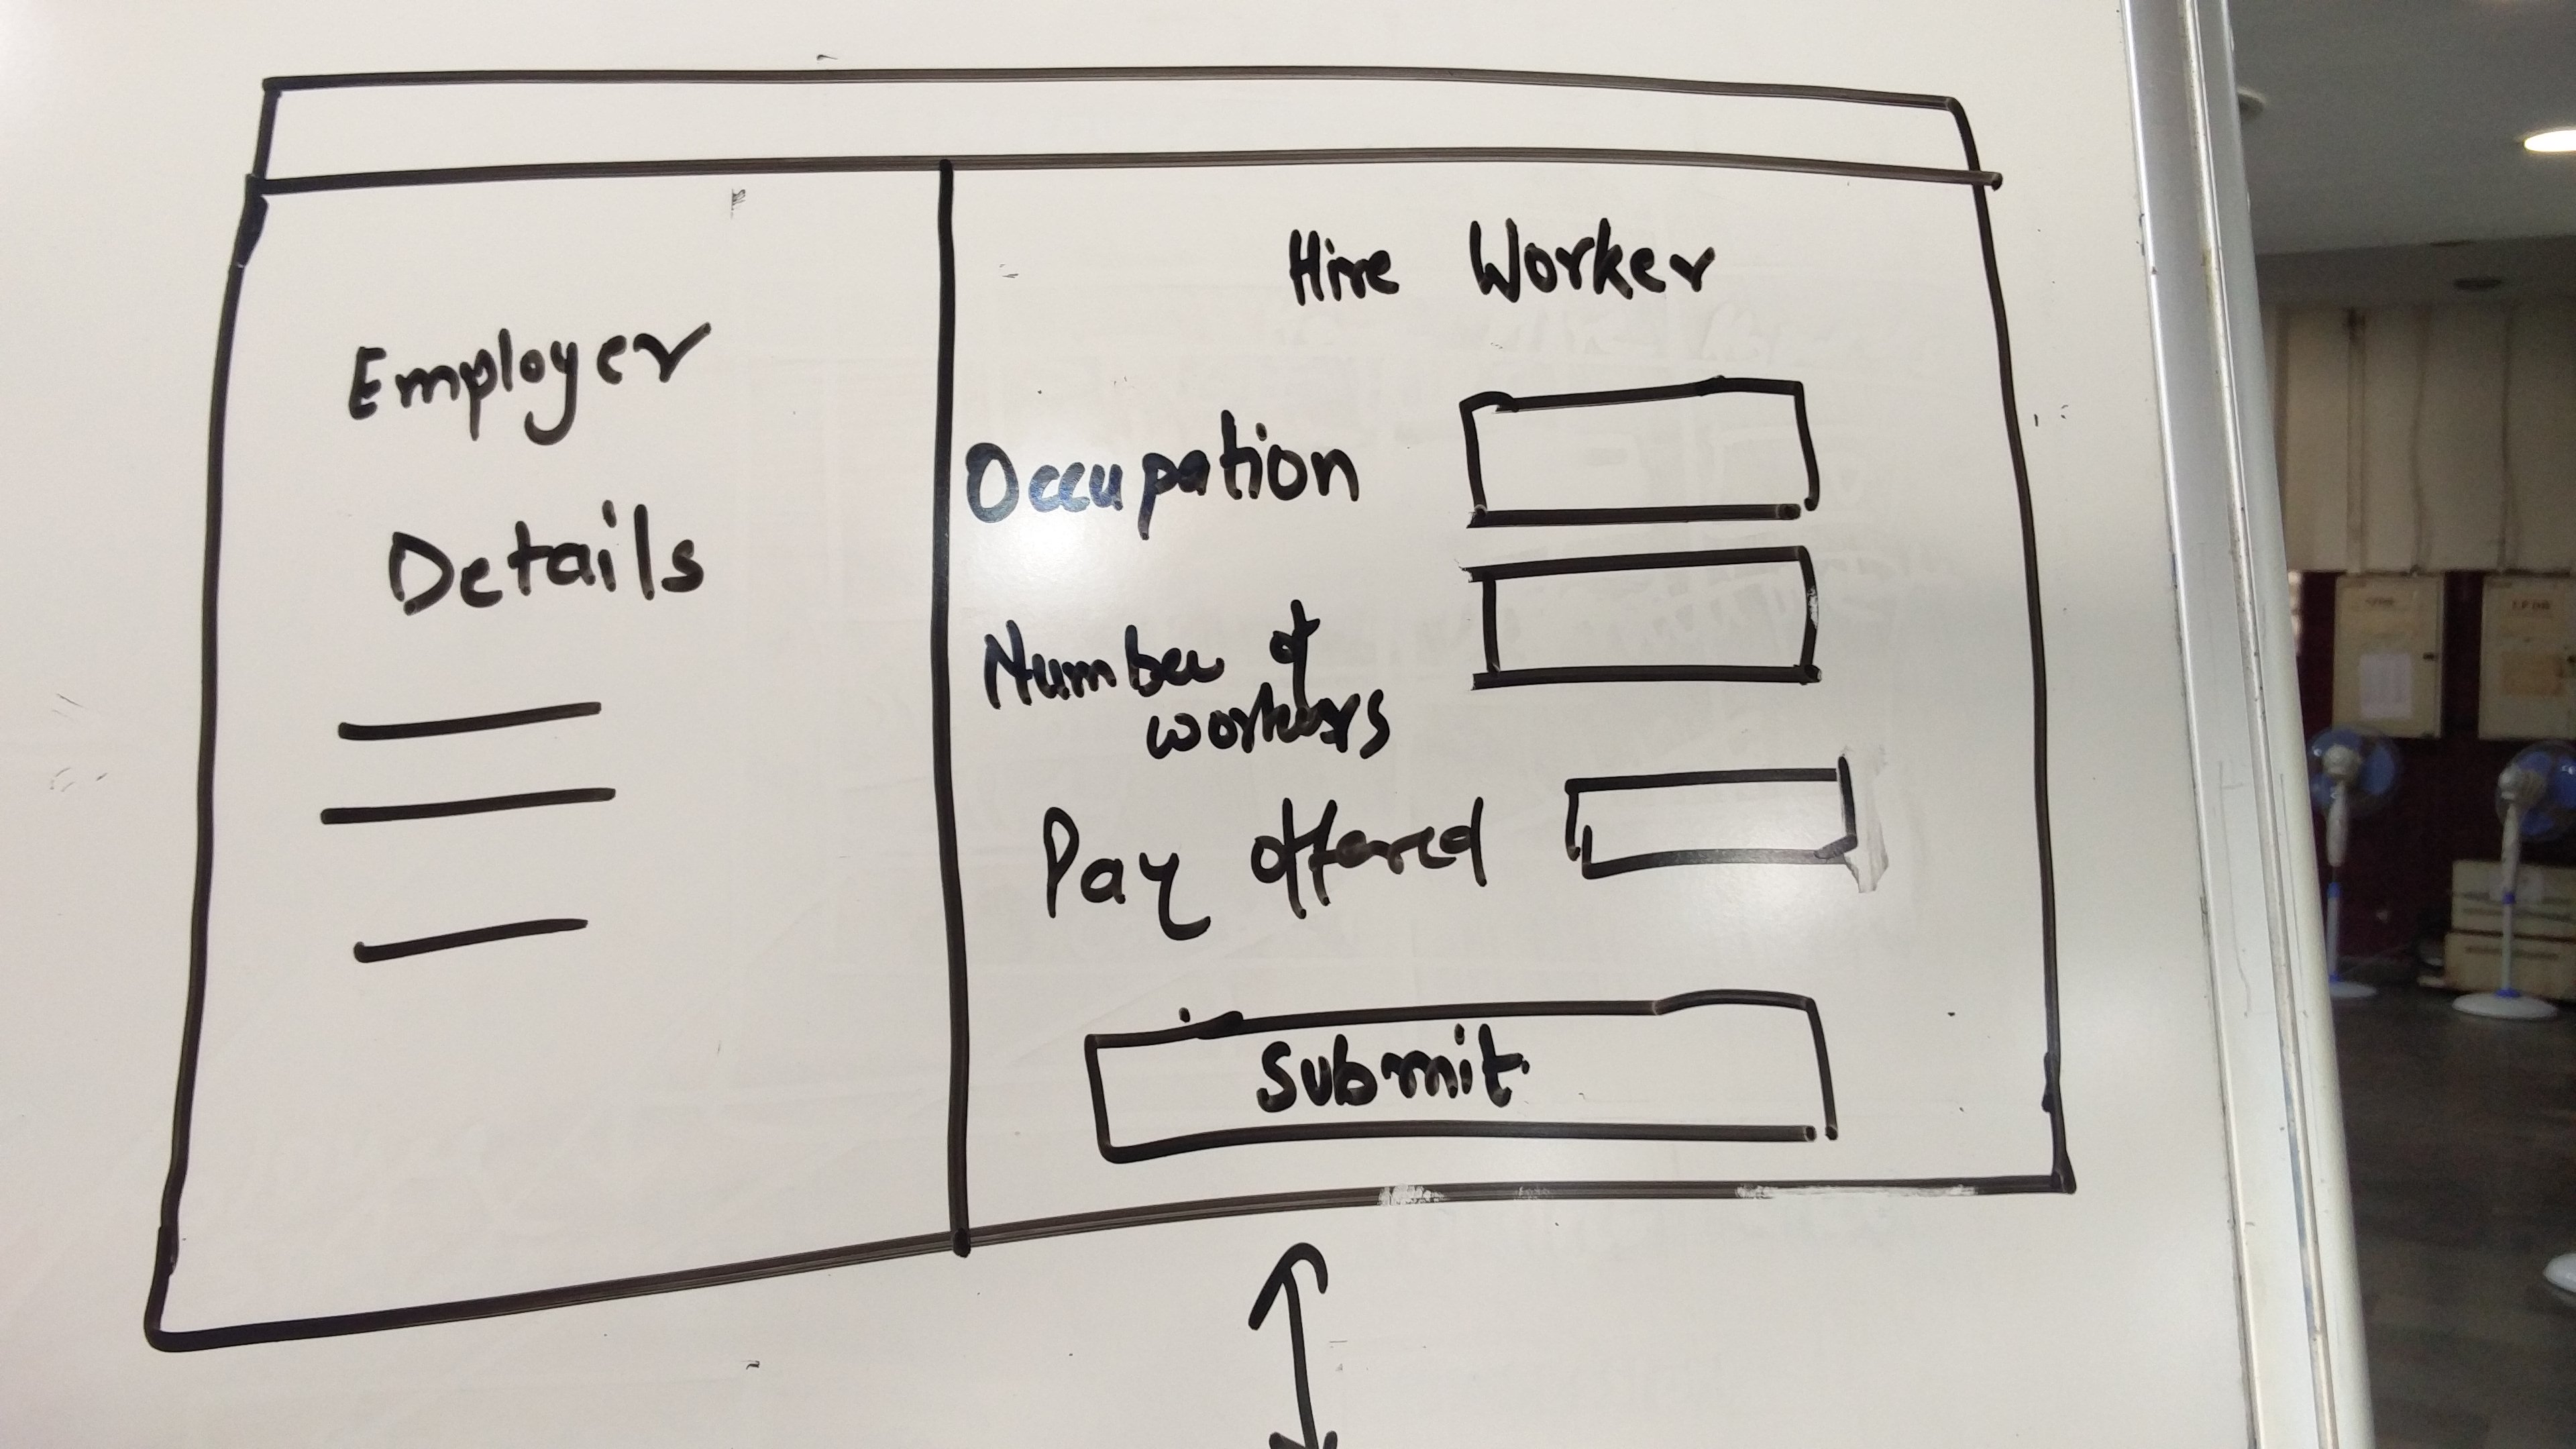 Employer
Details
Hire Worker
Occupation
Number of
workers
Pay offered
Submit